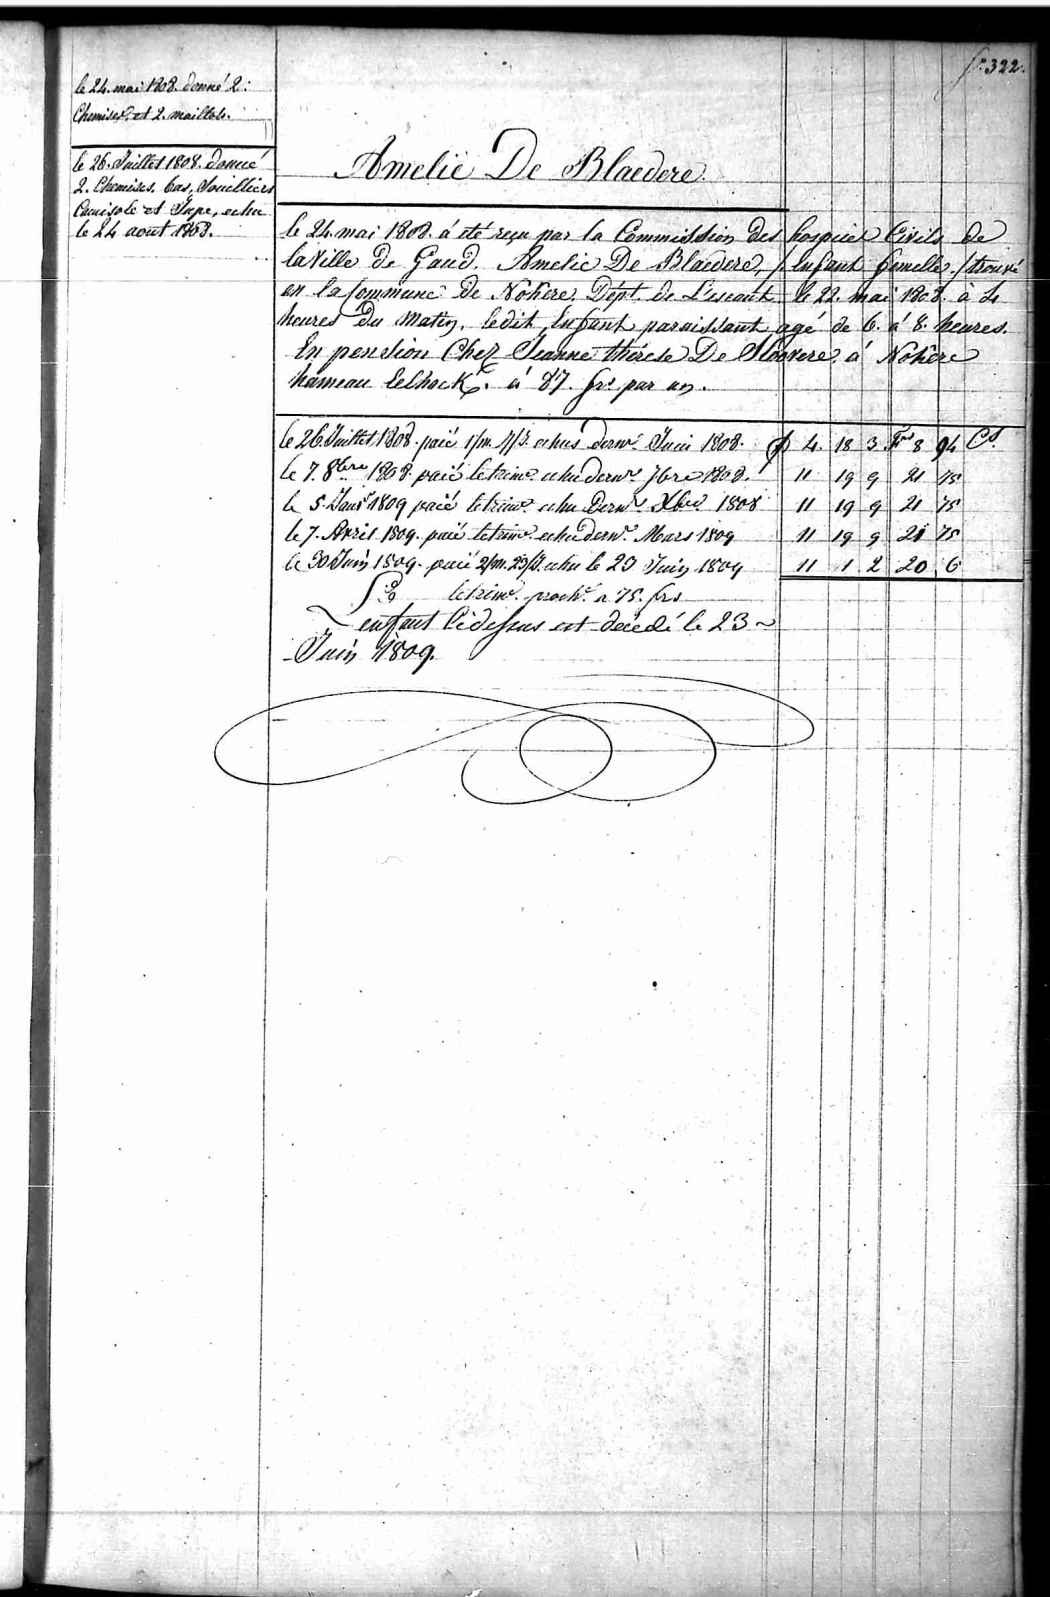 f° 322.
le 24. mai 1808. donné 2.
Chemises, et 2. maillots.
le 26. Juillet 1808. donné
2. Chemises, bas, Souilliers
Camisole et Jupe, echu
le 24 aout 1808.
Amelie De Blaedere.
le 24. mai 1808. á été reçu par la Commission des hospices Civils de
la Ville de Gand. Amelie De Blaedere, / Enfant femelle / trouvé
en la Commune de Nokere. Dépt. de L'escaut le 22. mai 1808. à 4
heures Du Matin, ledit Enfant paraissant agé de 6. á 8. heures.
En pension Chez Jeanne thérese De Sloovere. á Nokere
hameau Lelhoek. á 87. frs. par an.
le 26 Juillet 1808. paié 1/m. 7/j. echus dernr. Juin 1808. 4. 18 3 Frs 8 94 Cs.
le 7. 8bre 1808. paié le trimr. echu dernr. 7bre 1808. 11 19 9 21 75
le 5. Janr. 1809 paié le trimr. echu Dernr. Xbre 1808 11 19 9 21 75
le 7. Avril 1809. paié le trimr. echu dernr. Mars 1809 11 19 9 21 75
le 30 Juin 1809. paié 2/m. 23/j. echu le 23 Juin 1809 11 1 2 20 6
le trimr. proche. a 75. frs
enfant Cidessus est decedé le 23
Juin 1809.